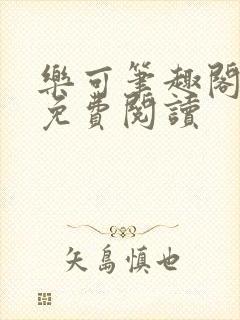 樂可筆趣閣
免費閱讀
矢島慎也